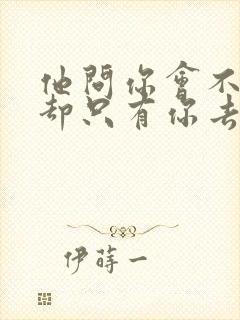 他問你會不
却只有你去
伊蒔一